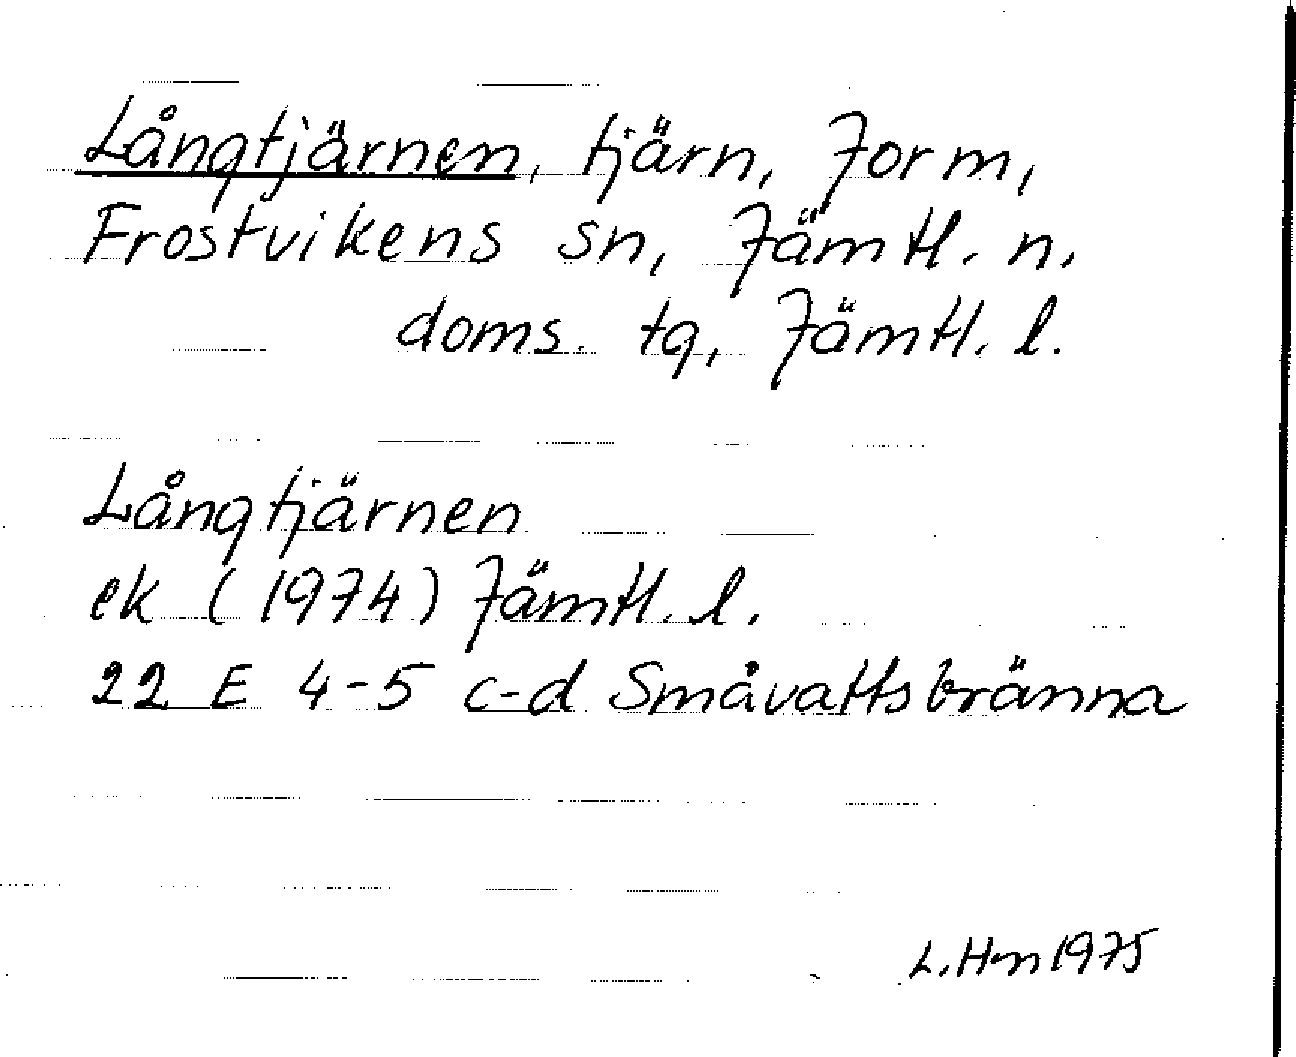 Långtjärnen, tjärn, Jorm,
Frostvikens sn, Jämtl. n.
doms. tg, Jämtl. l.
Långtjärnen
ek (1974) Jämtl. l.
22 E 4-5 c-d Småvattsbränna
L. Hm 1975